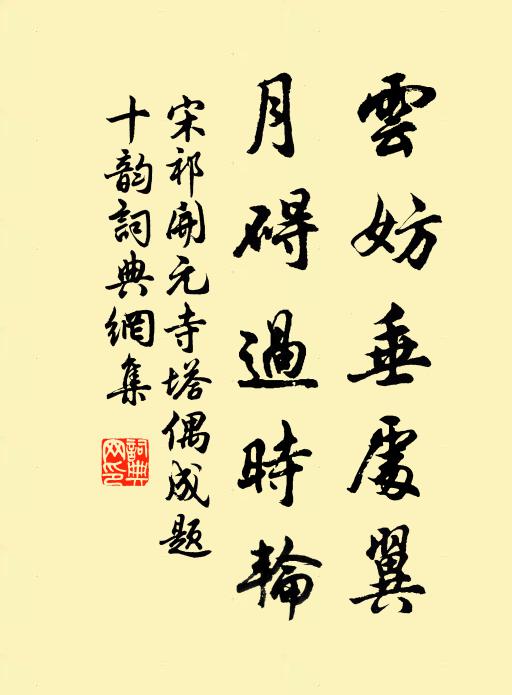 雲妨垂處翼
月碍過時輪
宋祁開元寺塔偶成題
十韵詞典網集
詞典
网印